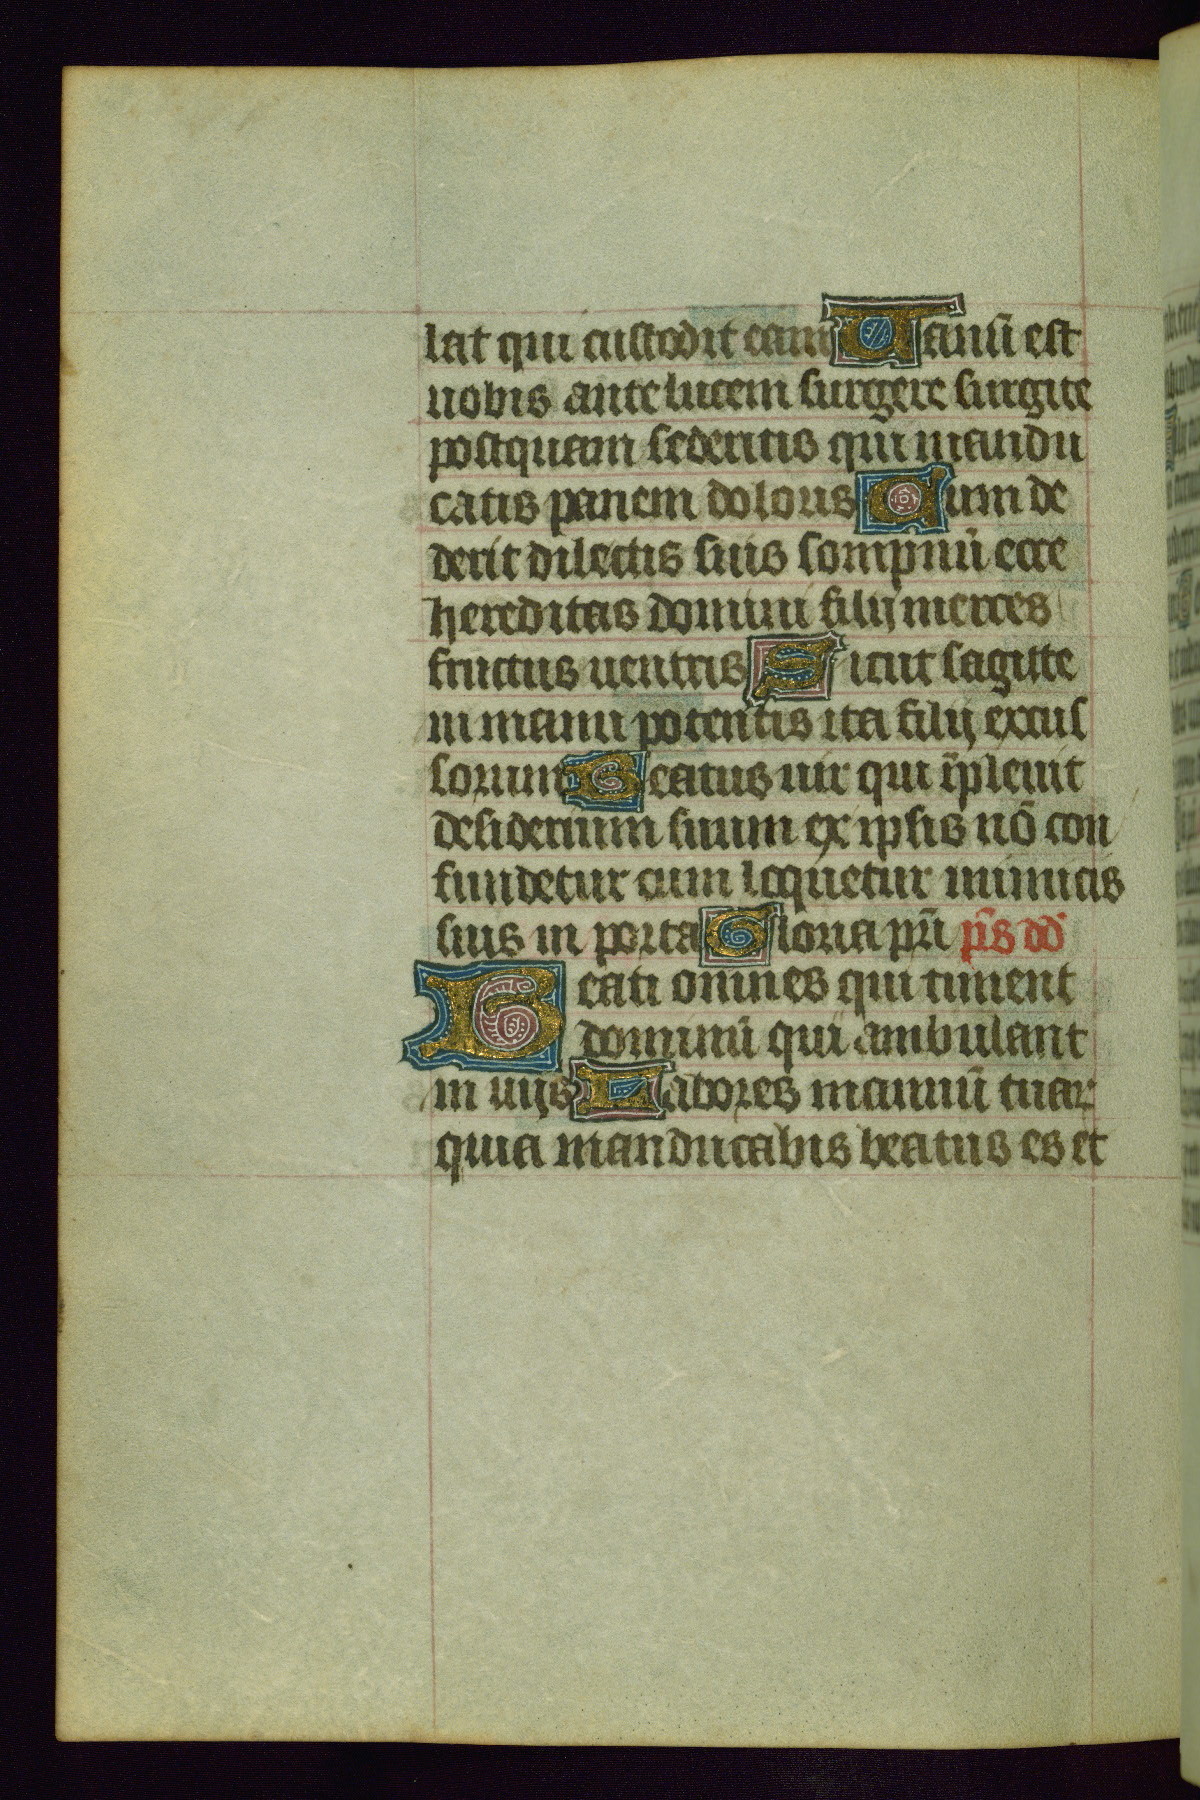 lat qui custodit eam Uanū est
uobis ante lucem surgere surgite
postquam sederitis qui mandu
catis panem doloris Cum de
derit dilectis suis sompnū ecce
hereditas domini filij merces
fructus uentris Sicut sagitte
in manu potentis ita filij excus
sorum Beatus uir qui īpleuit
desiderium suum ex ipsis nō con
fundetur cum loquetur inimicis
suis in porta Gloria pr̄i ps̄ dd
Beati omnes qui timent
dominū qui ambulant
in uijs Labores manuū tuar
quia manducabis beatus es et